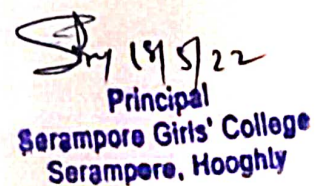 18/5/22
Principal
Serampore Girls' College
Serampore, Hooghly